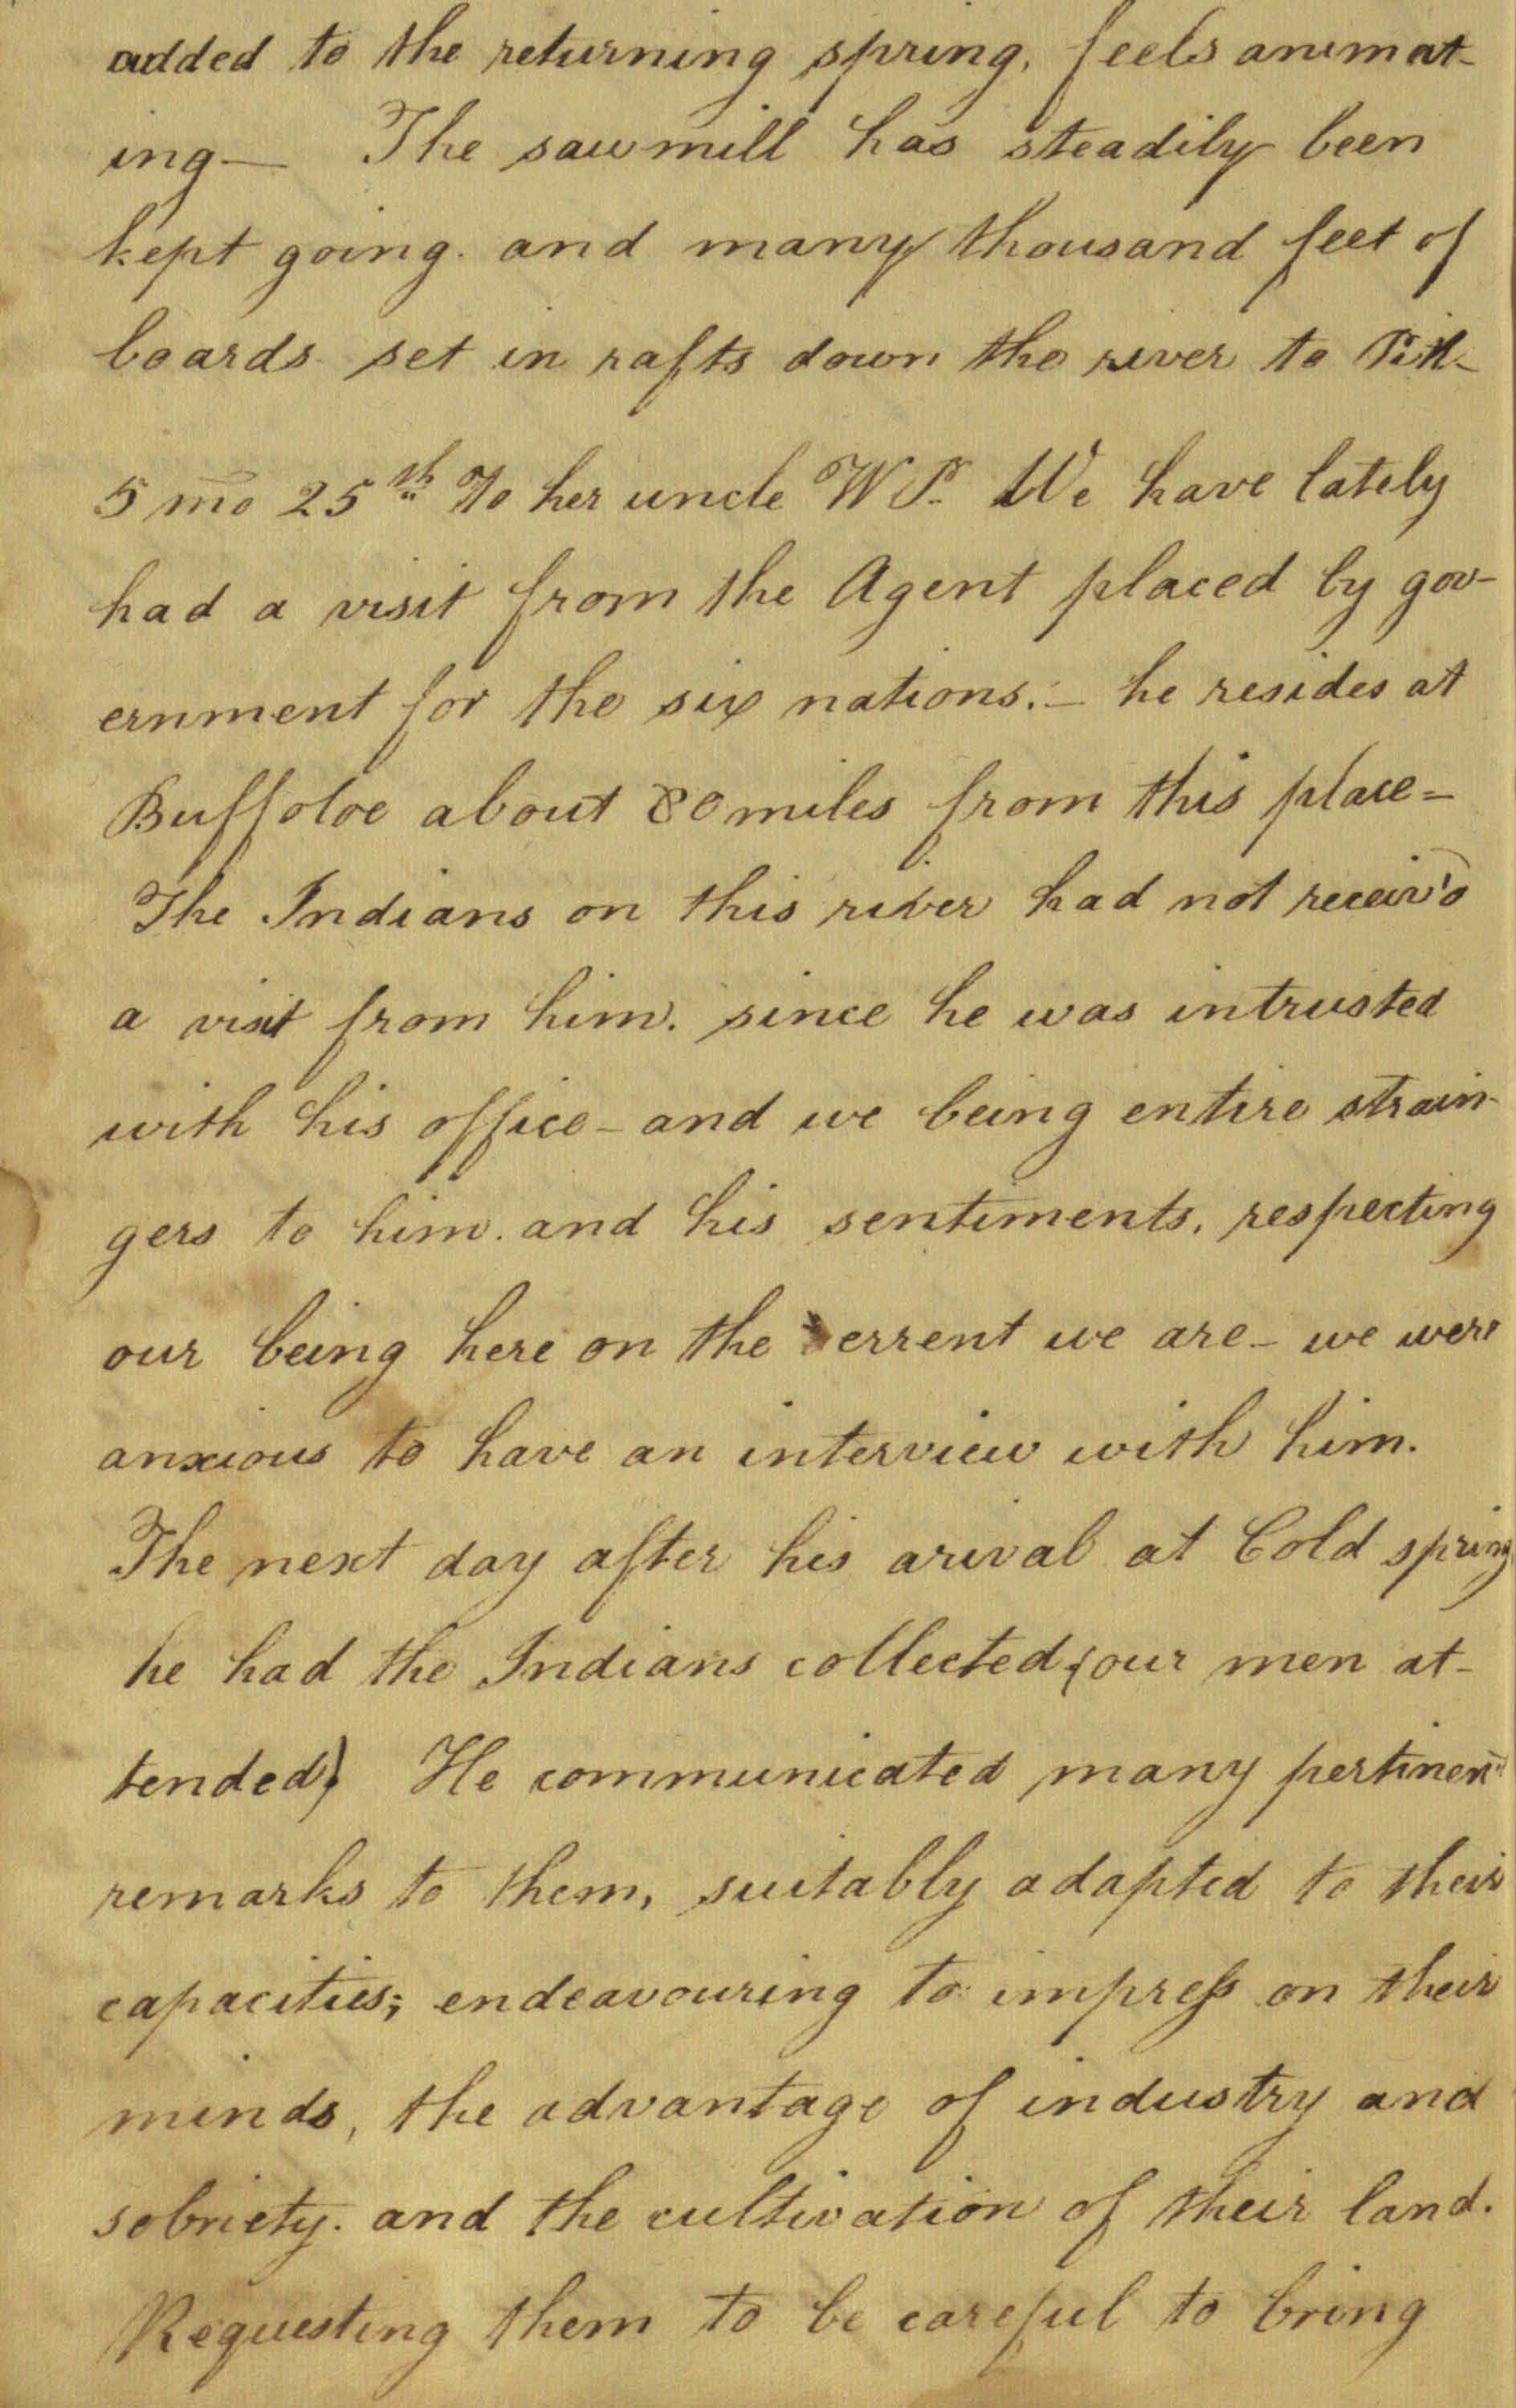 added to the returning spring, feels animat-
ing — The sawmill has steadily been
kept going. and many thousand feet of
boards set in rafts down the river to Pitt-
5 mo 25th To her uncle W P. We have lately
had a visit from the Agent placed by gov-
ernment for the six nations. — he resides at
Buffoloe about 80 miles from this place =
The Indians on this river had not receiv'd
a visit from him. since he was intrusted
with his office - and we being entire strain-
gers to him. and his sentiments, respecting
our being here on the errent we are - we were
anxious to have an interview with him.
The next day after his arival at Cold spring
he had the Indians collected, (our men at-
tended) He communicated many pertinent
remarks to them, suitably adapted to their
capacities; endeavouring to impress on their
minds, the advantage of industry and
sobriety. and the cultivation of their land.
Requesting them to be careful to bring